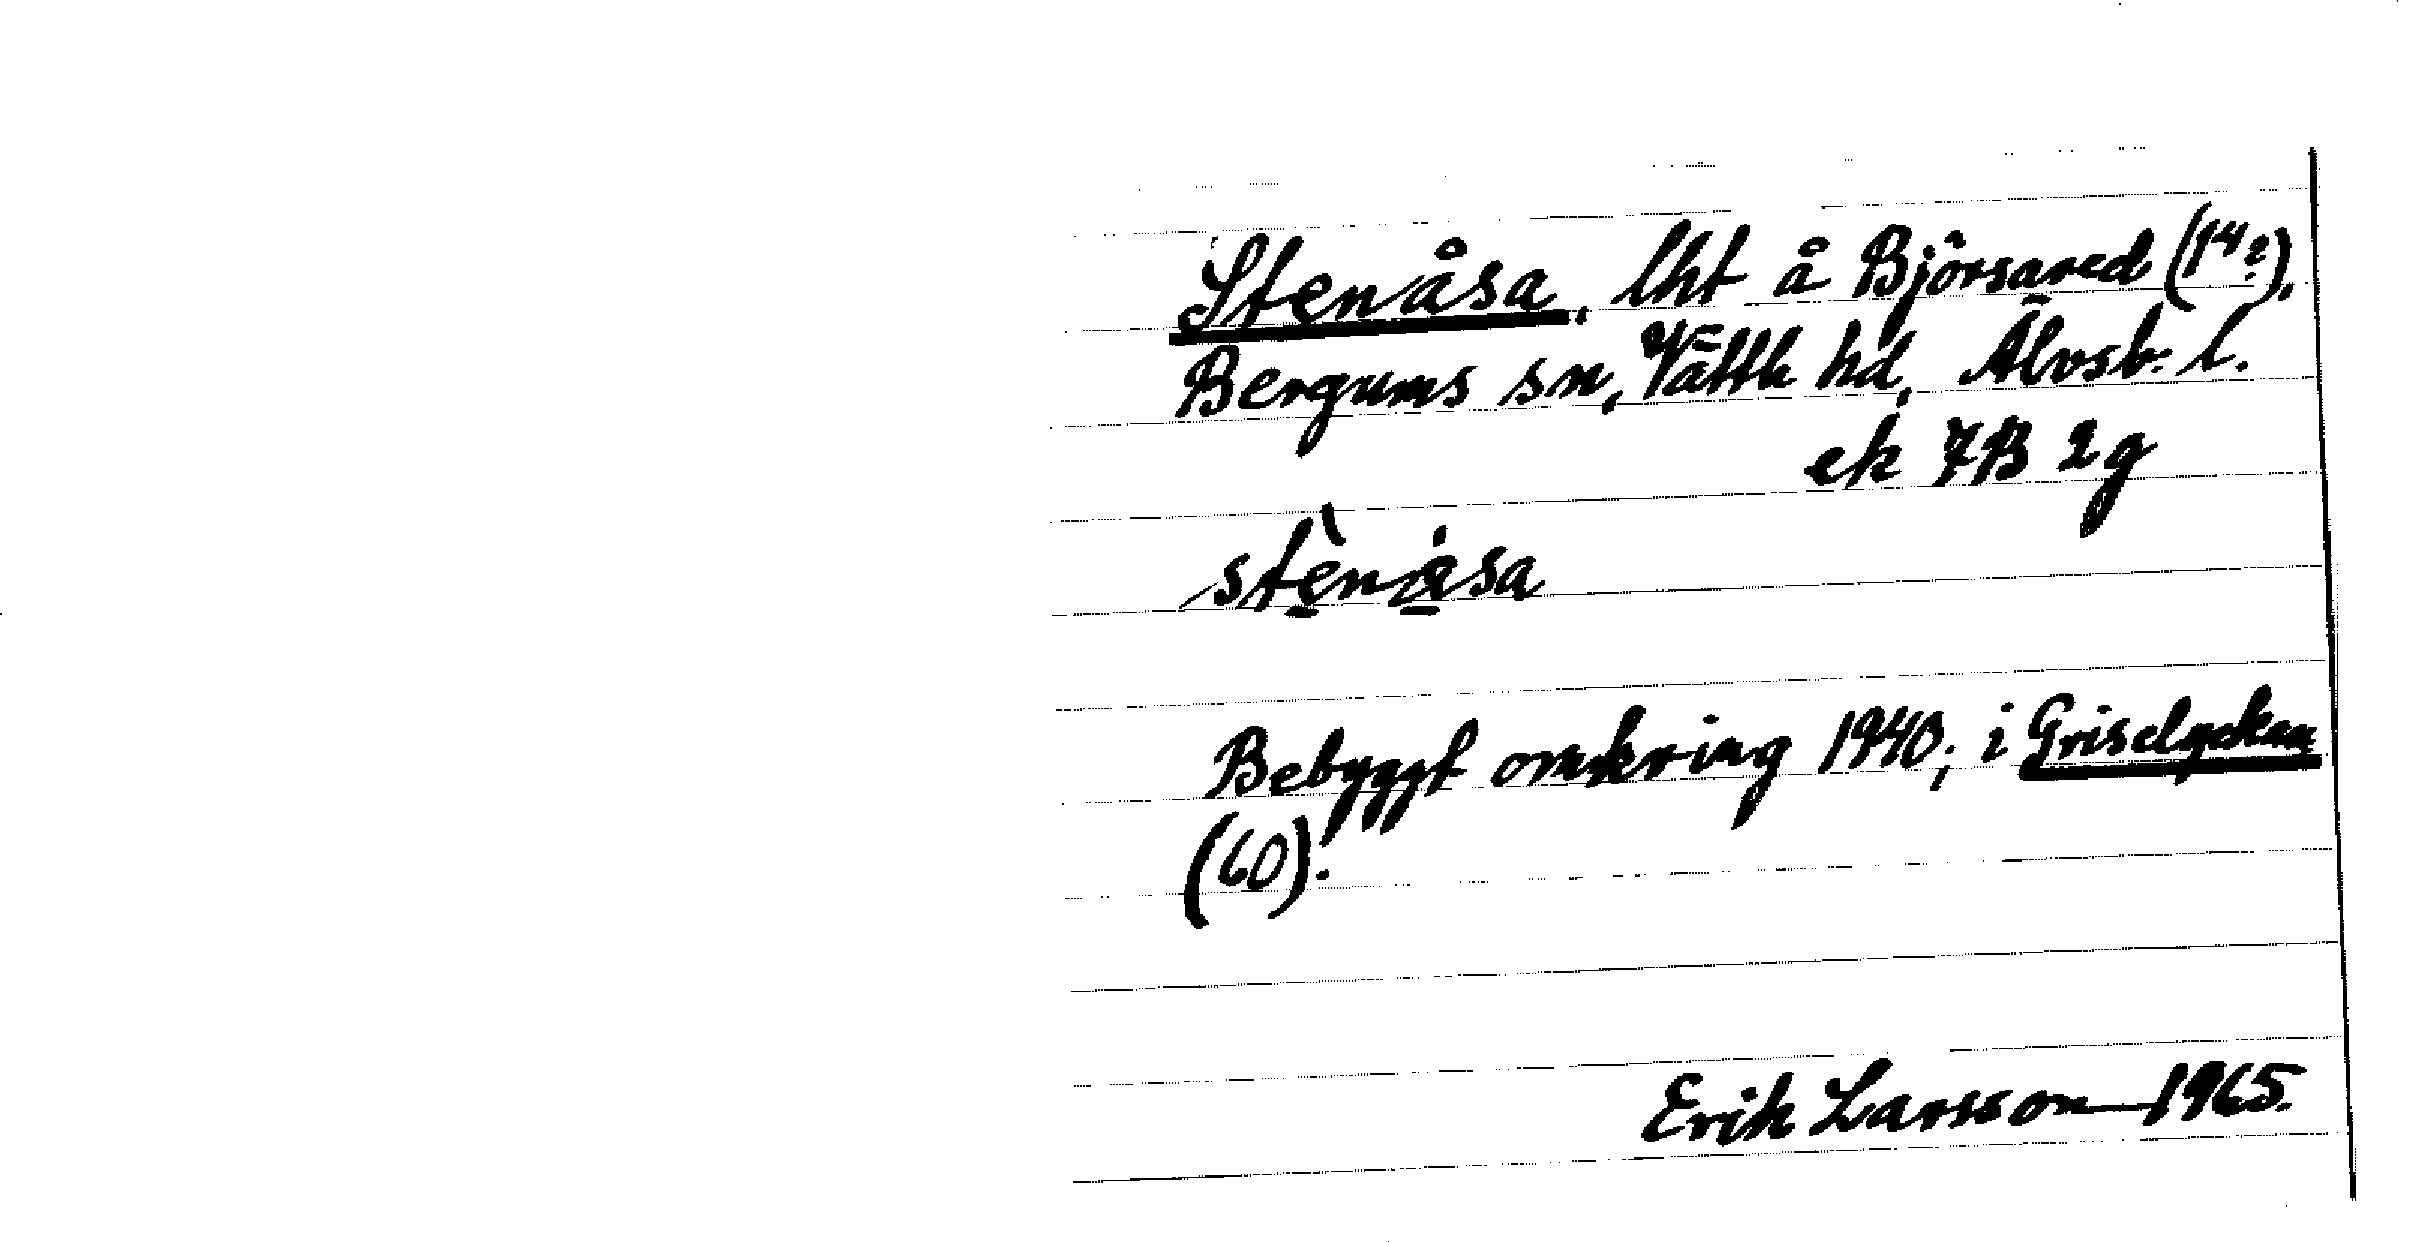 Stenåsa, lht å Björsared (1⁴²).
Bergums sn, Vättle hd, Älvsb. l.
ek 7B 2g
stènåsa
Bebyggt omkring 1940; i Griselyckan
(60).
Erik Larsson 1965.